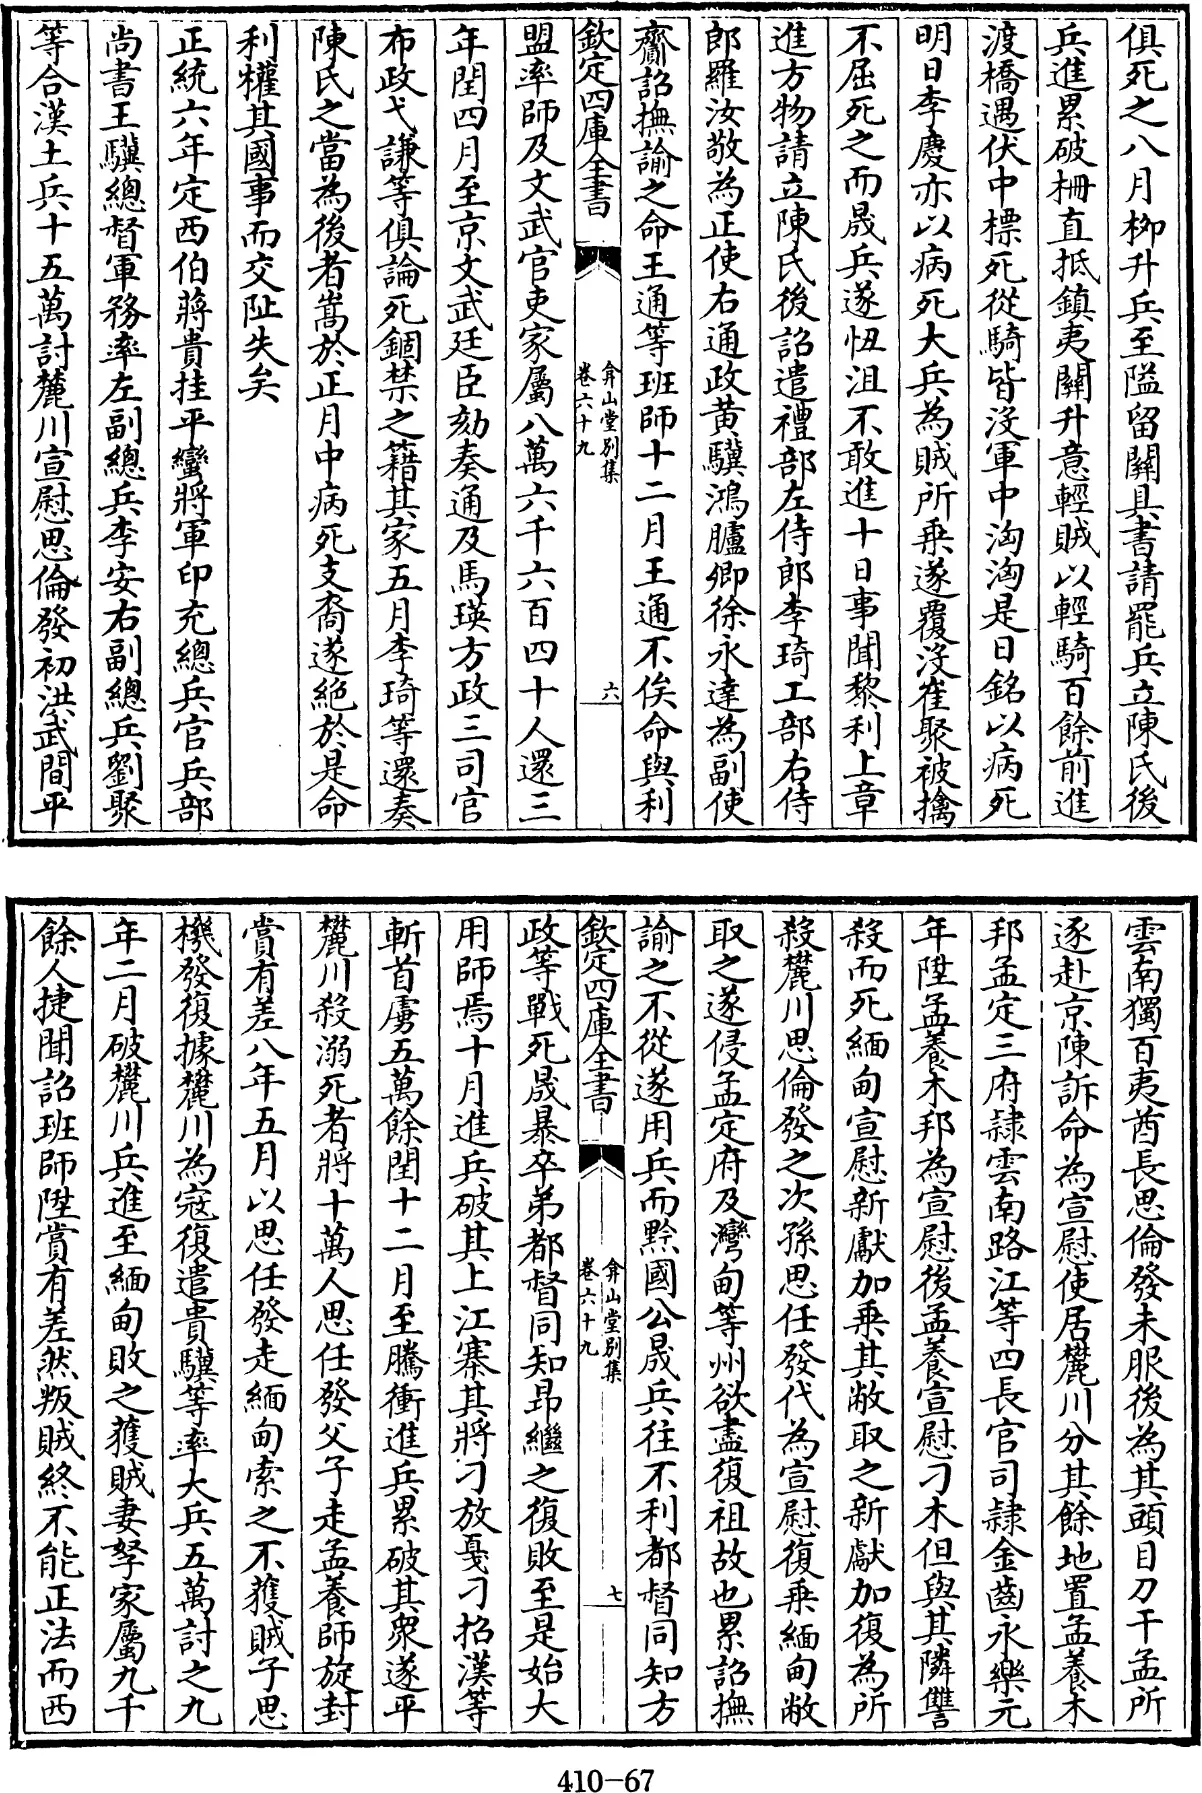 俱死之八月栁升兵至隘留關具書請罷兵立陳氏後
兵進累破柵直抵鎮夷關升意輕賊以輕騎百餘前進
渡橋遇伏中標死從騎皆沒軍中洶洶是日銘以病死
明日李慶亦以病死大兵為賊所乗遂覆沒崔聚被擒
不屈死之而晟兵遂忸沮不敢進十日事聞黎利上章
進方物請立陳氏後詔遣禮部左侍郎李琦工部右侍
郎羅汝敬為正使右通政黃驥鴻臚卿徐永達為副使
齎詔撫諭之命王通等班師十二月王通不俟命與利
欽定四庫全書
弇山堂别集
卷六十九
六
盟率師及文武官吏家屬八萬六千六百四十人還三
年閏四月至京文武廷臣劾奏通及馬瑛方政三司官
布政弋謙等俱論死錮禁之籍其家五月李琦等還奏
陳氏之當為後者暠於正月中病死支裔遂絶於是命
利權其國事而交阯失矣
正統六年定西伯蔣貴挂平蠻將軍印充總兵官兵部
尚書王驥總督軍務率左副總兵李安右副總兵劉聚
等合漢土兵十五萬討麓川宣慰思倫發初洪武間平
雲南獨百夷酋長思倫發未服後為其頭目刀干孟所
逐赴京陳訴命為宣慰使居麓川分其餘地置孟養木
邦孟定三府隸雲南路江等四長官司隸金齒永樂元
年陞孟養木邦為宣慰後孟養宣慰刁木但與其隣讐
殺而死緬甸宣慰新獻加乗其敝取之新獻加復為所
殺麓川思倫發之次孫思任發代為宣慰復乗緬甸敝
取之遂侵孟定府及灣甸等州欲盡復祖故也累詔撫
諭之不從遂用兵而黔國公晟兵往不利都督同知方
欽定四庫全書
弇山堂别集
卷六十九
七
政等戰死晟暴卒弟都督同知昂繼之復敗至是始大
用師焉十月進兵破其上江寨其將刁放戞刁招漢等
斬首虜五萬餘閏十二月至騰衝進兵累破其衆遂平
麓川殺溺死者將十萬人思任發父子走孟養師旋封
賞有差八年五月以思任發走緬甸索之不獲賊子思
機發復據麓川為寇復遣貴驥等率大兵五萬討之九
年二月破麓川兵進至緬甸敗之獲賊妻孥家屬九千
餘人捷聞詔班師陞賞有差然叛賊終不能正法而西
410-67